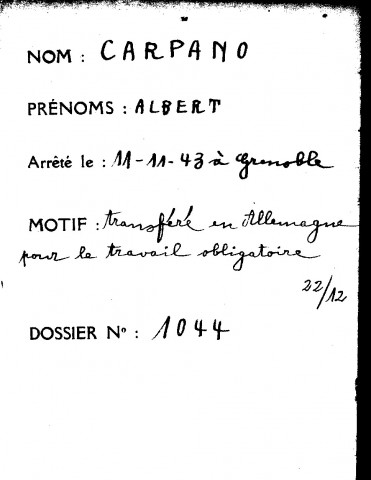 NOM : CARPANO
PRÉNOMS : ALBERT
Arrêté le : 11-11-43 à Grenoble
MOTIF : transféré en Allemagne
pour le travail obligatoire
22/12
DOSSIER No : 1044